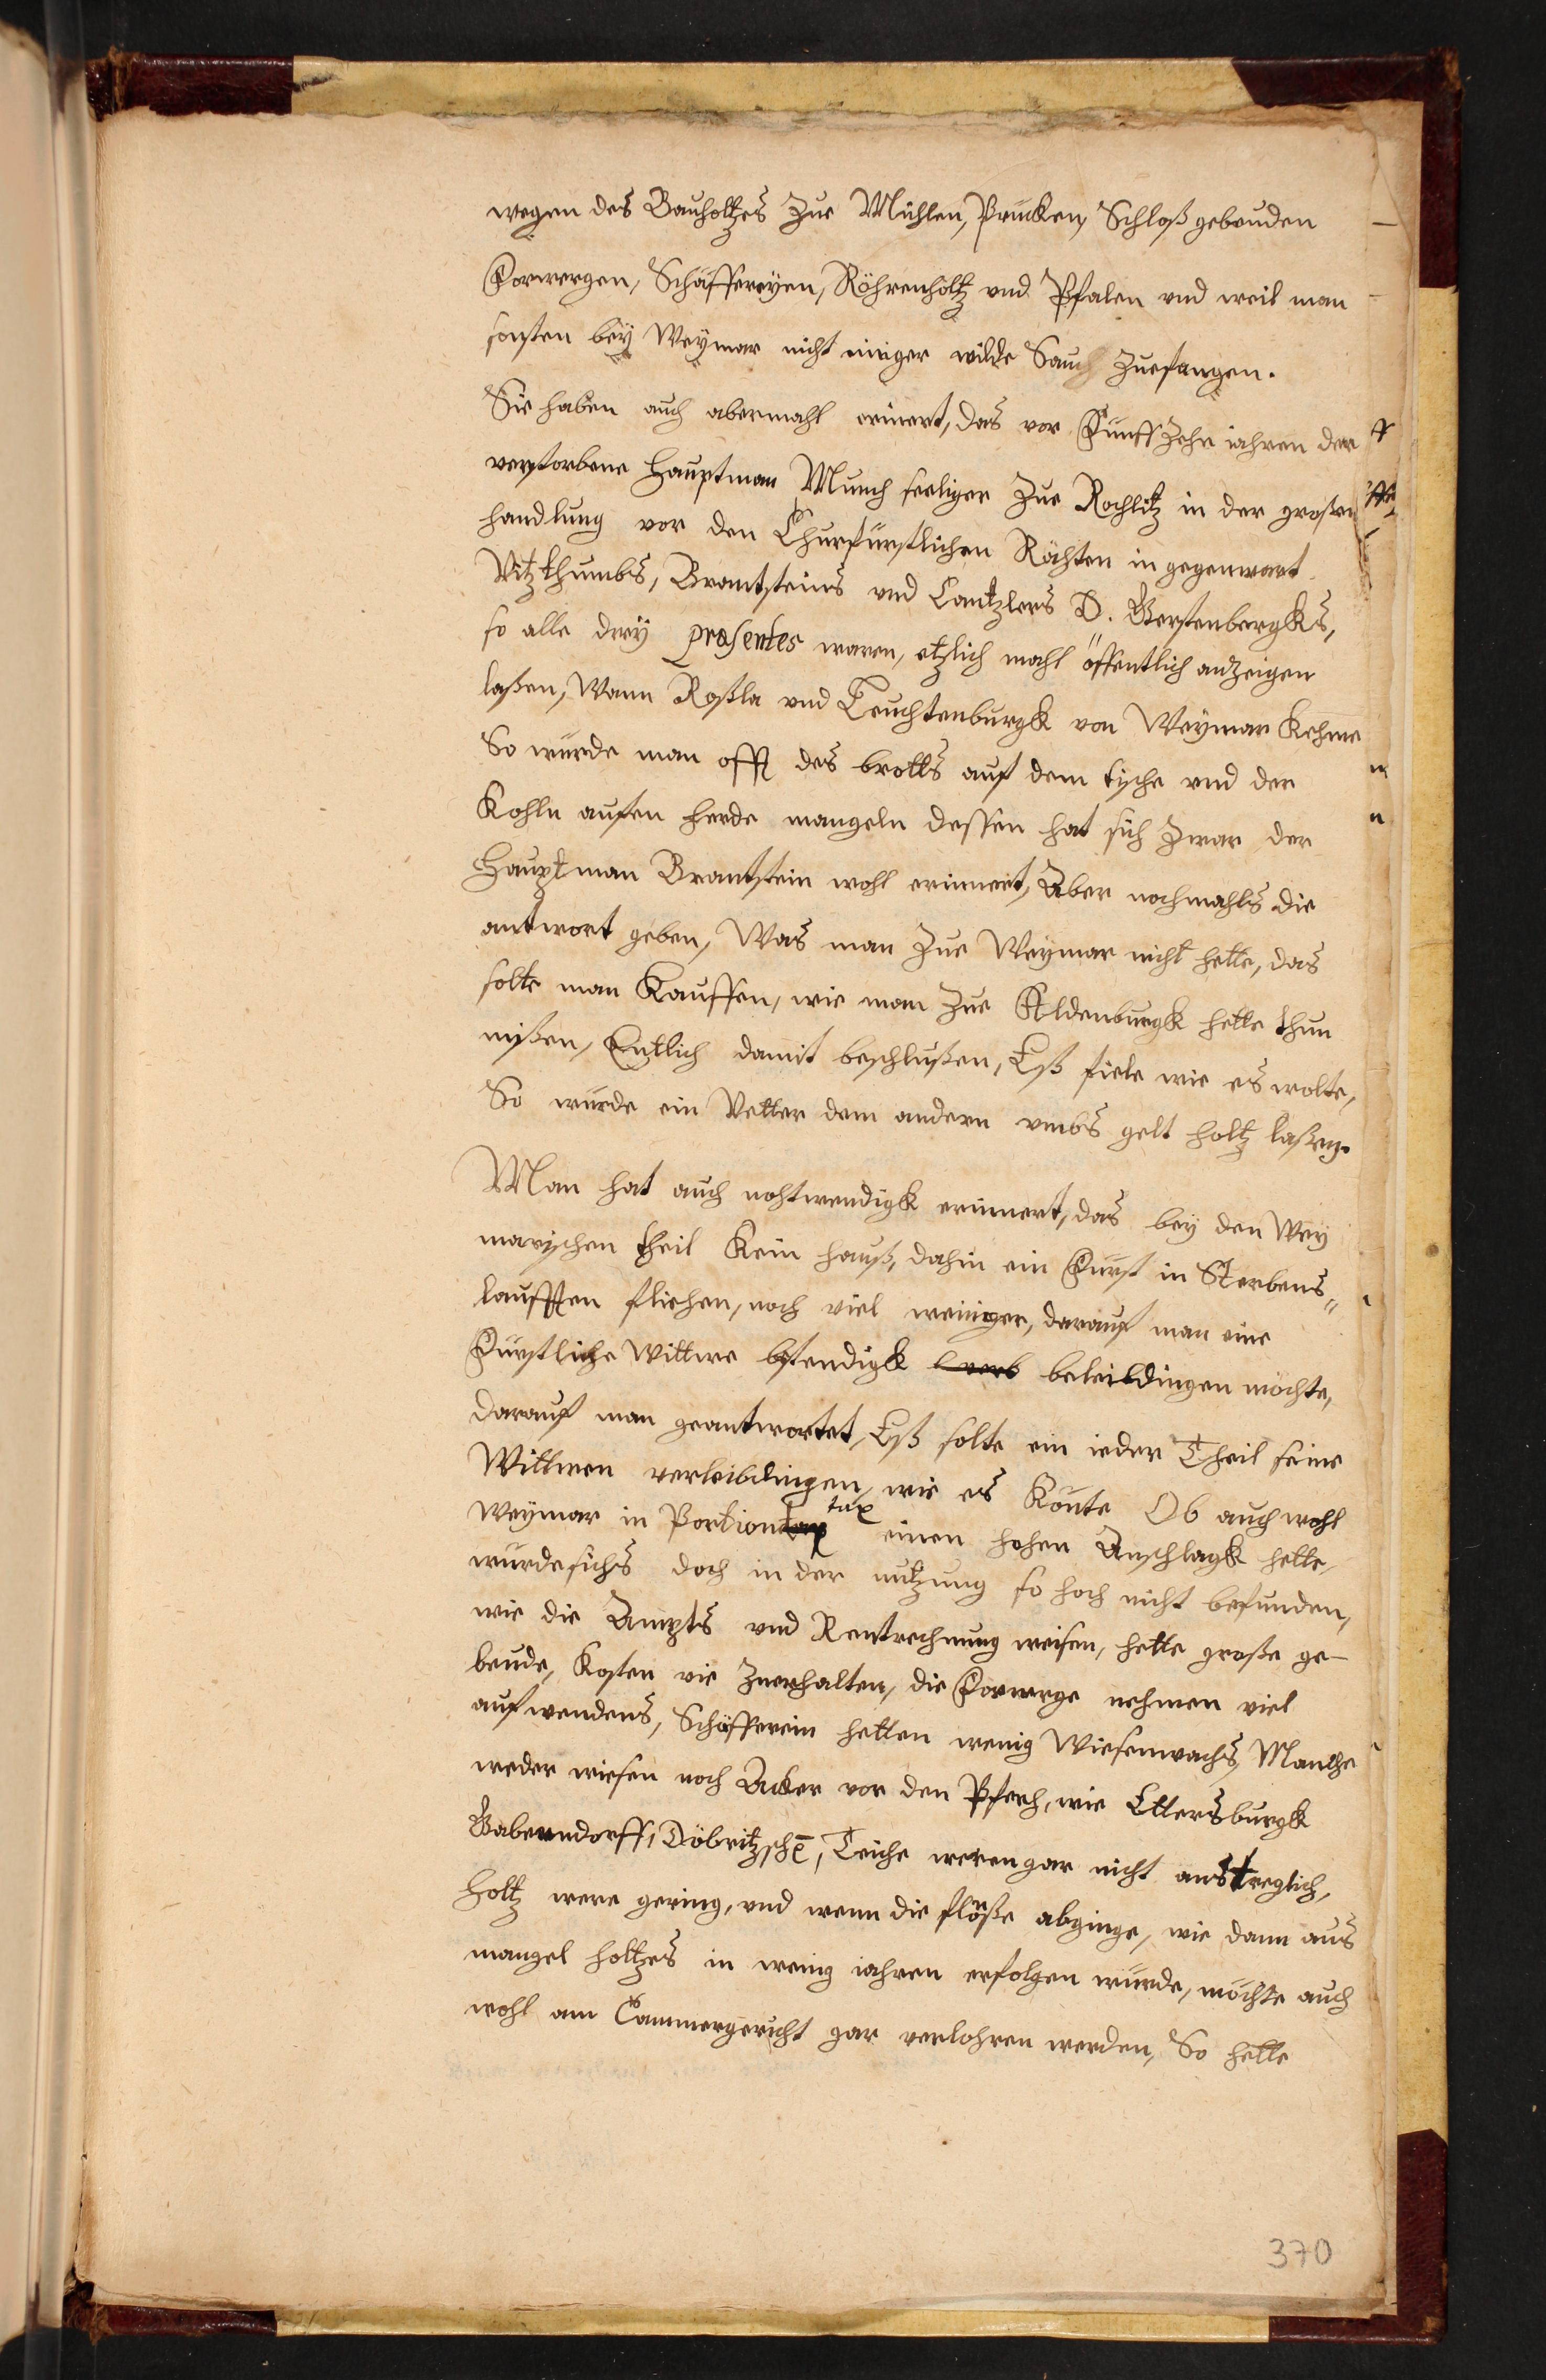 wegen des Bauholtzes zue Mühlen, Brücken, Schloß gebeuden
Forwergen, Schäffereyen, Röhrenholtz vnd Pfalen vnd weil man
sonsten bey Weymar nicht einiger wilde Sauch zuefangen.
Sie haben auch abermahl erinert, das vor Funffzehn iahren der
verstorbene Hauptman Munch seeliger zue Rochlitz in der großen
handlung vor den Churfürstlichen Rähten in gegenwart
Vitzthumbs, Brantsteins vnd Cantzlers D. Gerstenbergks,
so alle drey præsentes waren, etzlich mahl öffentlich anzeigen
laßen, Wann Roßla vnd Leuchtenburgk von Weymar kehme
So würde man offt des brotts auf dem tische vnd der
Kohln aufen herde mangeln dessen hat sich zwar der
Hauptman Brantstein wohl erinnert, Aber nochmahls die
antwort geben, Was man zue Weymar nicht hette, das
solte man Kauffen, wie man zue Aldenburgk hette thun
müßen, Entlich damit beschlußen, Eß fiele wie es wolte,
So würde ein Vetter dem andern vmbs gelt holtz laßen.
Man hat auch nohtwendigk erinnert, das bey den Wey
marischen theil kein hauß, dahin ein Fürst in Sterbens„
laufften fliehen, noch viel weiniger, darauf man eine
Fürstliche Wittwe bstendigk beleibdingen möchte,
darauf man geantwortet, Eß solte ein ieder Theil seine
Wittwen verleibdingen, wie es Könte Ob auch wohl
tax
Weymar in Portion einen hohen Anschlagk hette,
würde sichs doch in der nutzung so hoch nicht befunden,
wie die Ampts vnd Rentrechnung weisen, hette große ge-
beude, Kosten vie zuerhalten, die Forwerge nehmen viel
aufwendens, Schäfferein hetten wenig Wiesenwachs, Manche
weder wiesen noch Acker vor den Pferch, wie Ettersburgk
Gaberndorff, Döbritzschē, Teiche weren gar nicht austreglich,
Holtz were gering, vnd wenn die flöße abginge, wie dann aus
mangel holtzes in wenig iahren erfolgen würde, möchte auch
wohl am Cammergericht gar verlohren werden, So hette
370